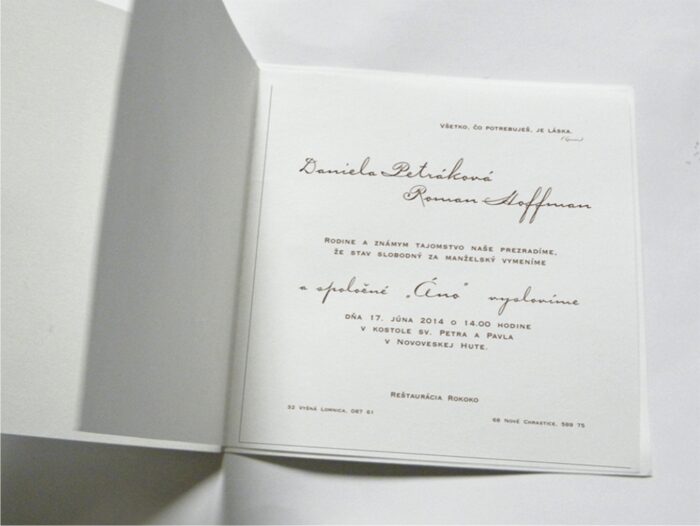 VŠETKO, ČO POTREBUJEŠ, JE LÁSKA.
Daniela Petráková
Roman Hoffman
RODINE A ZNÁMYM TAJOMSTVO NAŠE PREZRADÍME,
ŽE STAV SLOBODNÝ ZA MANŽELSKÝ VYMENÍME
a spoločné „Áno" vyslovíme
DŇA 17. JÚNA 2014 O 14.00 HODINE
V KOSTOLE SV. PETRA A PAVLA
V NOVOVESKEJ HUTE.
REŠTAURÁCIA ROKOKO
52 VYŠNÁ LOMNICA, 087 61
68 NOVÉ CHRASTICE, 599 75